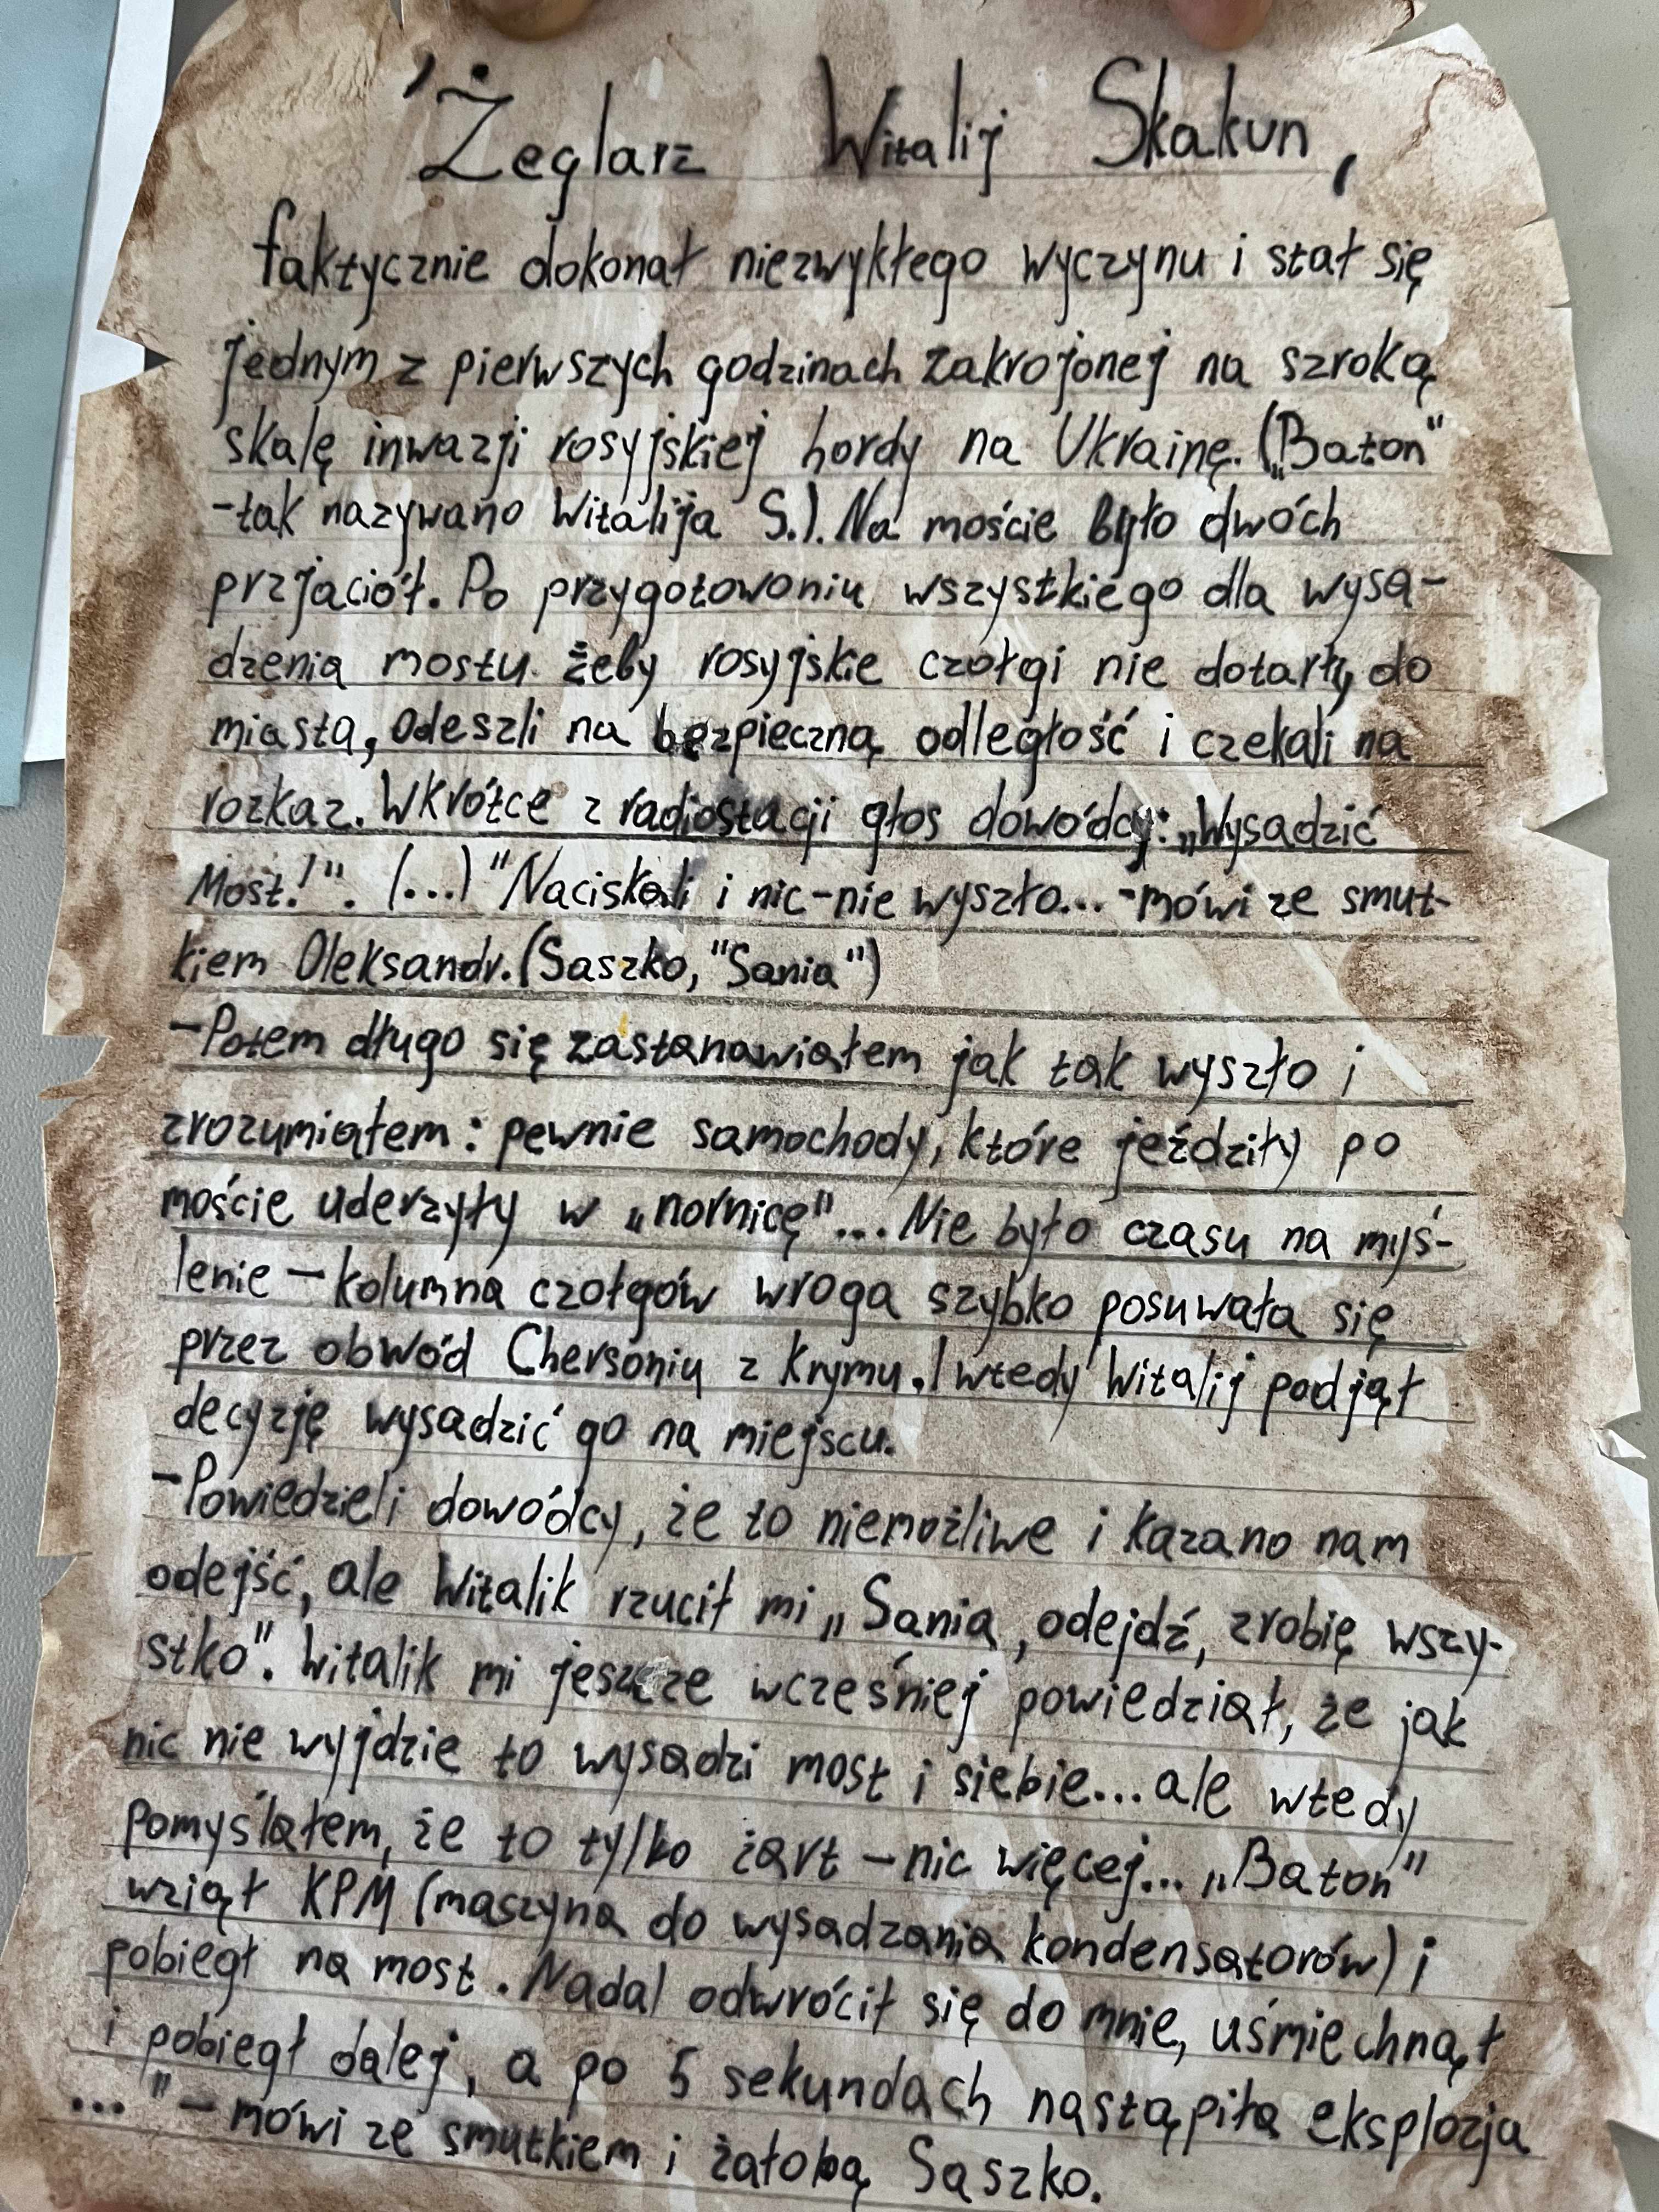 'Żeglarz Witalij Skakun,
faktycznie dokonał niezwykłego wyczynu i stał się
jednym z pierwszych godzinach zakrojonej na szroką
skalę inwazji rosyjskiej hordy na Ukrainę. („Baton"
-tak nazywano Witalija S.). Na moście było dwóch
przjaciół. Po przygotowaniu wszystkiego dla wysa-
dzenia mostu żeby rosyjskie czołgi nie dotarły do
miasta, odeszli na bezpieczną odległość i czekali na
rozkaz. Wkrótce z radiostacji głos dowódcy: „Wysadzić
Most!". (...) "Naciskali i nic-nie wyszło... -mówi ze smut-
kiem Oleksandr. (Saszko, "Sania")
-Potem długo się zastanawiałem jak tak wyszło i
zrozumiałem: pewnie samochody, które jeździły po
moście uderzyły w „nornicę"... Nie było czasu na myś-
lenie – kolumna czołgów wroga szybko posuwała się
przez obwód Chersoniu z Krymu. I wtedy Witalij podjął
decyzję wysadzić go na miejscu.
-Powiedzieli dowódcy, że to niemożliwe i kazano nam
odejść, ale Witalik rzucił mi „Sania, odejdź, zrobię wszy-
stko". Witalik mi jeszcze wcześniej powiedział, że jak
nic nie wyjdzie to wysadzi most i siebie... ale wtedy
pomyślałem, że to tylko żart – nic więcej... „Baton"
wziął KPM (maszyna do wysadzania kondensatorów) i
pobiegł na most. Nadal odwrócił się do mnie, uśmiechnął
i pobiegł dalej, a po 5 sekundach nastąpiła eksplozja
..." – mówi ze smutkiem i żałobą Saszko.